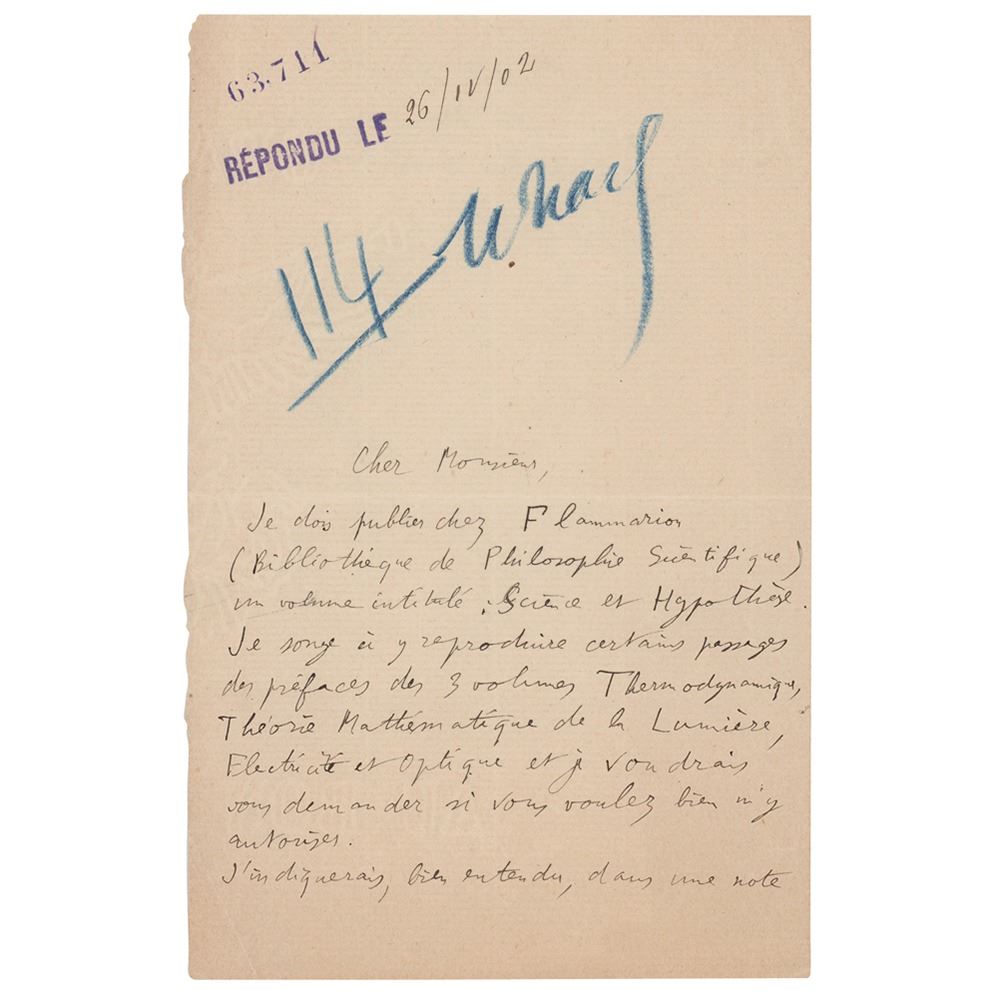 63.711
RÉPONDU LE 26/IV/02
114
Cher Monsieur,
Je dois publier chez Flammarion
(Bibliothèque de Philosophie Scientifique)
un volume intitulé : Science et Hypothèse.
Je songe à y reproduire certains passages
des préfaces des 3 volumes Thermodynamique,
Théorie Mathématique de la Lumière,
Electricité et Optique et je voudrais
vous demander si vous voulez bien m'y
autoriser.
J'indiquerais, bien entendu, dans une note